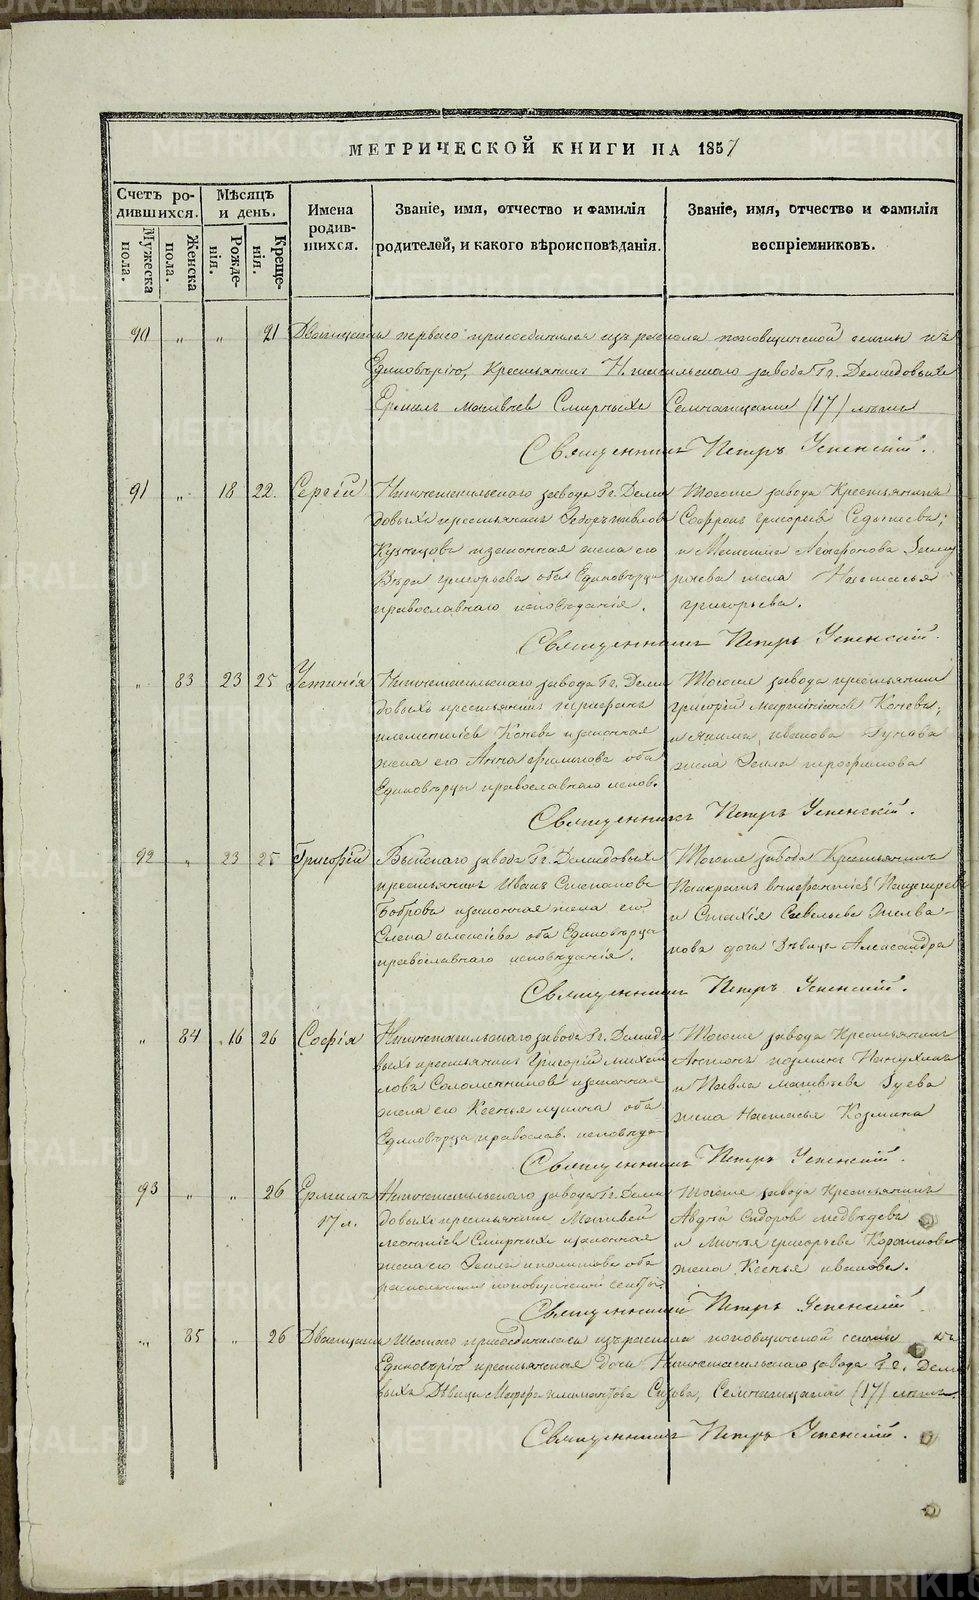 МЕТРИЧЕСКОЙ КНИГИ НА 1857
Счетъ ро-
дившихся.
Мѣсяцъ
и день.
Имена
родив-
шихся.
Званіе, имя, отчество и фамилія
родителей, и какого вѣроисповѣданія.
Званіе, имя, отчество и фамилія
воспріемниковъ.
Мужеска
пола.
Женска
пола.
Рожде-
нія.
Креще-
нія.
90 „ „ 21 Двадцать перваго присоединился изъ раскола поповщинской секты къ
Единовѣрію, Крестьянинъ Н. тагильскаго завода Гг. Демидовыхъ
Ермилъ Матвѣев Смирныхъ Семнадцати (17) лѣтъ
Священникъ Петръ Успенскій.
91 „ 18 22. Сергій
Нижнетагильскаго завода Гг. Деми
довыхъ крестьянинъ Ѳедоръ
Кузнецовъ и законная жена его
Вѣра григорьева оба Единовѣрцы
православнаго исповѣданія.
Тогоже завода Крестьянинъ
Софронъ григорьев
и Максима
жена Настасья
григорьева.
Священникъ Петръ Успенскій.
„ 83 23 25 Устинія
Нижнетагильскаго завода Гг. Деми
довыхъ крестьянинъ
и законная
жена его Анна филипова оба
Единовѣрцы православнаго испов.
Тогоже завода крестьянинъ
григорій
и Якима иванова
жена Ѳекла трофимова
Священникъ Петръ Успенскій.
92 „ 23 25 Григорій
Выйскаго завода Гг. Демидовыхъ
крестьянинъ Иванъ Степановъ
Бобровъ и законная жена его
Елена алексѣева оба Единовѣрцы
православнаго исповѣданія.
Тогоже завода Крестьянинъ
Панкратъ
и Савельева
дочь Дѣвица Александра
Священникъ Петръ Успенскій.
„ 84 16 26 Софія
Нижнетагильскаго завода Гг. Демидо
выхъ крестьянинъ Григорій михай
ловъ Соломенниковъ и законная
жена его Ксенья лукина оба
Единовѣрцы православ. исповѣда-
Тогоже завода Крестьянинъ
Антонъ козминъ
и Павла Матвѣева Гуева
жена Настасья Козмина
Священникъ Петръ Успенскій.
93 „ „ 26 Ермилъ
17 л.
Нижнетагильскаго завода Гг. Деми
довыхъ крестьянинъ Матвей
леонтіев Смирныхъ и законная
жена его Ѳекла иполитова оба
раскольники поповщинской секты.
Тогоже завода Крестьянинъ
Авдѣй Сидоров медвѣдевъ
и григорьева
жена Ксенья иванова.
Священникъ Петръ Успенскій
„ 85 „ 26 Двадцать Шестаго присоединилась изъ раскола поповщинской секты къ
Единовѣрію крестьянская дочь Нижнетагильскаго завода Г.г. Демидо
выхъ Дѣвица Семнадцати (17) лѣтъ.
Священникъ Петръ Успенскій.
METRIKI.GASO-URAL.RU